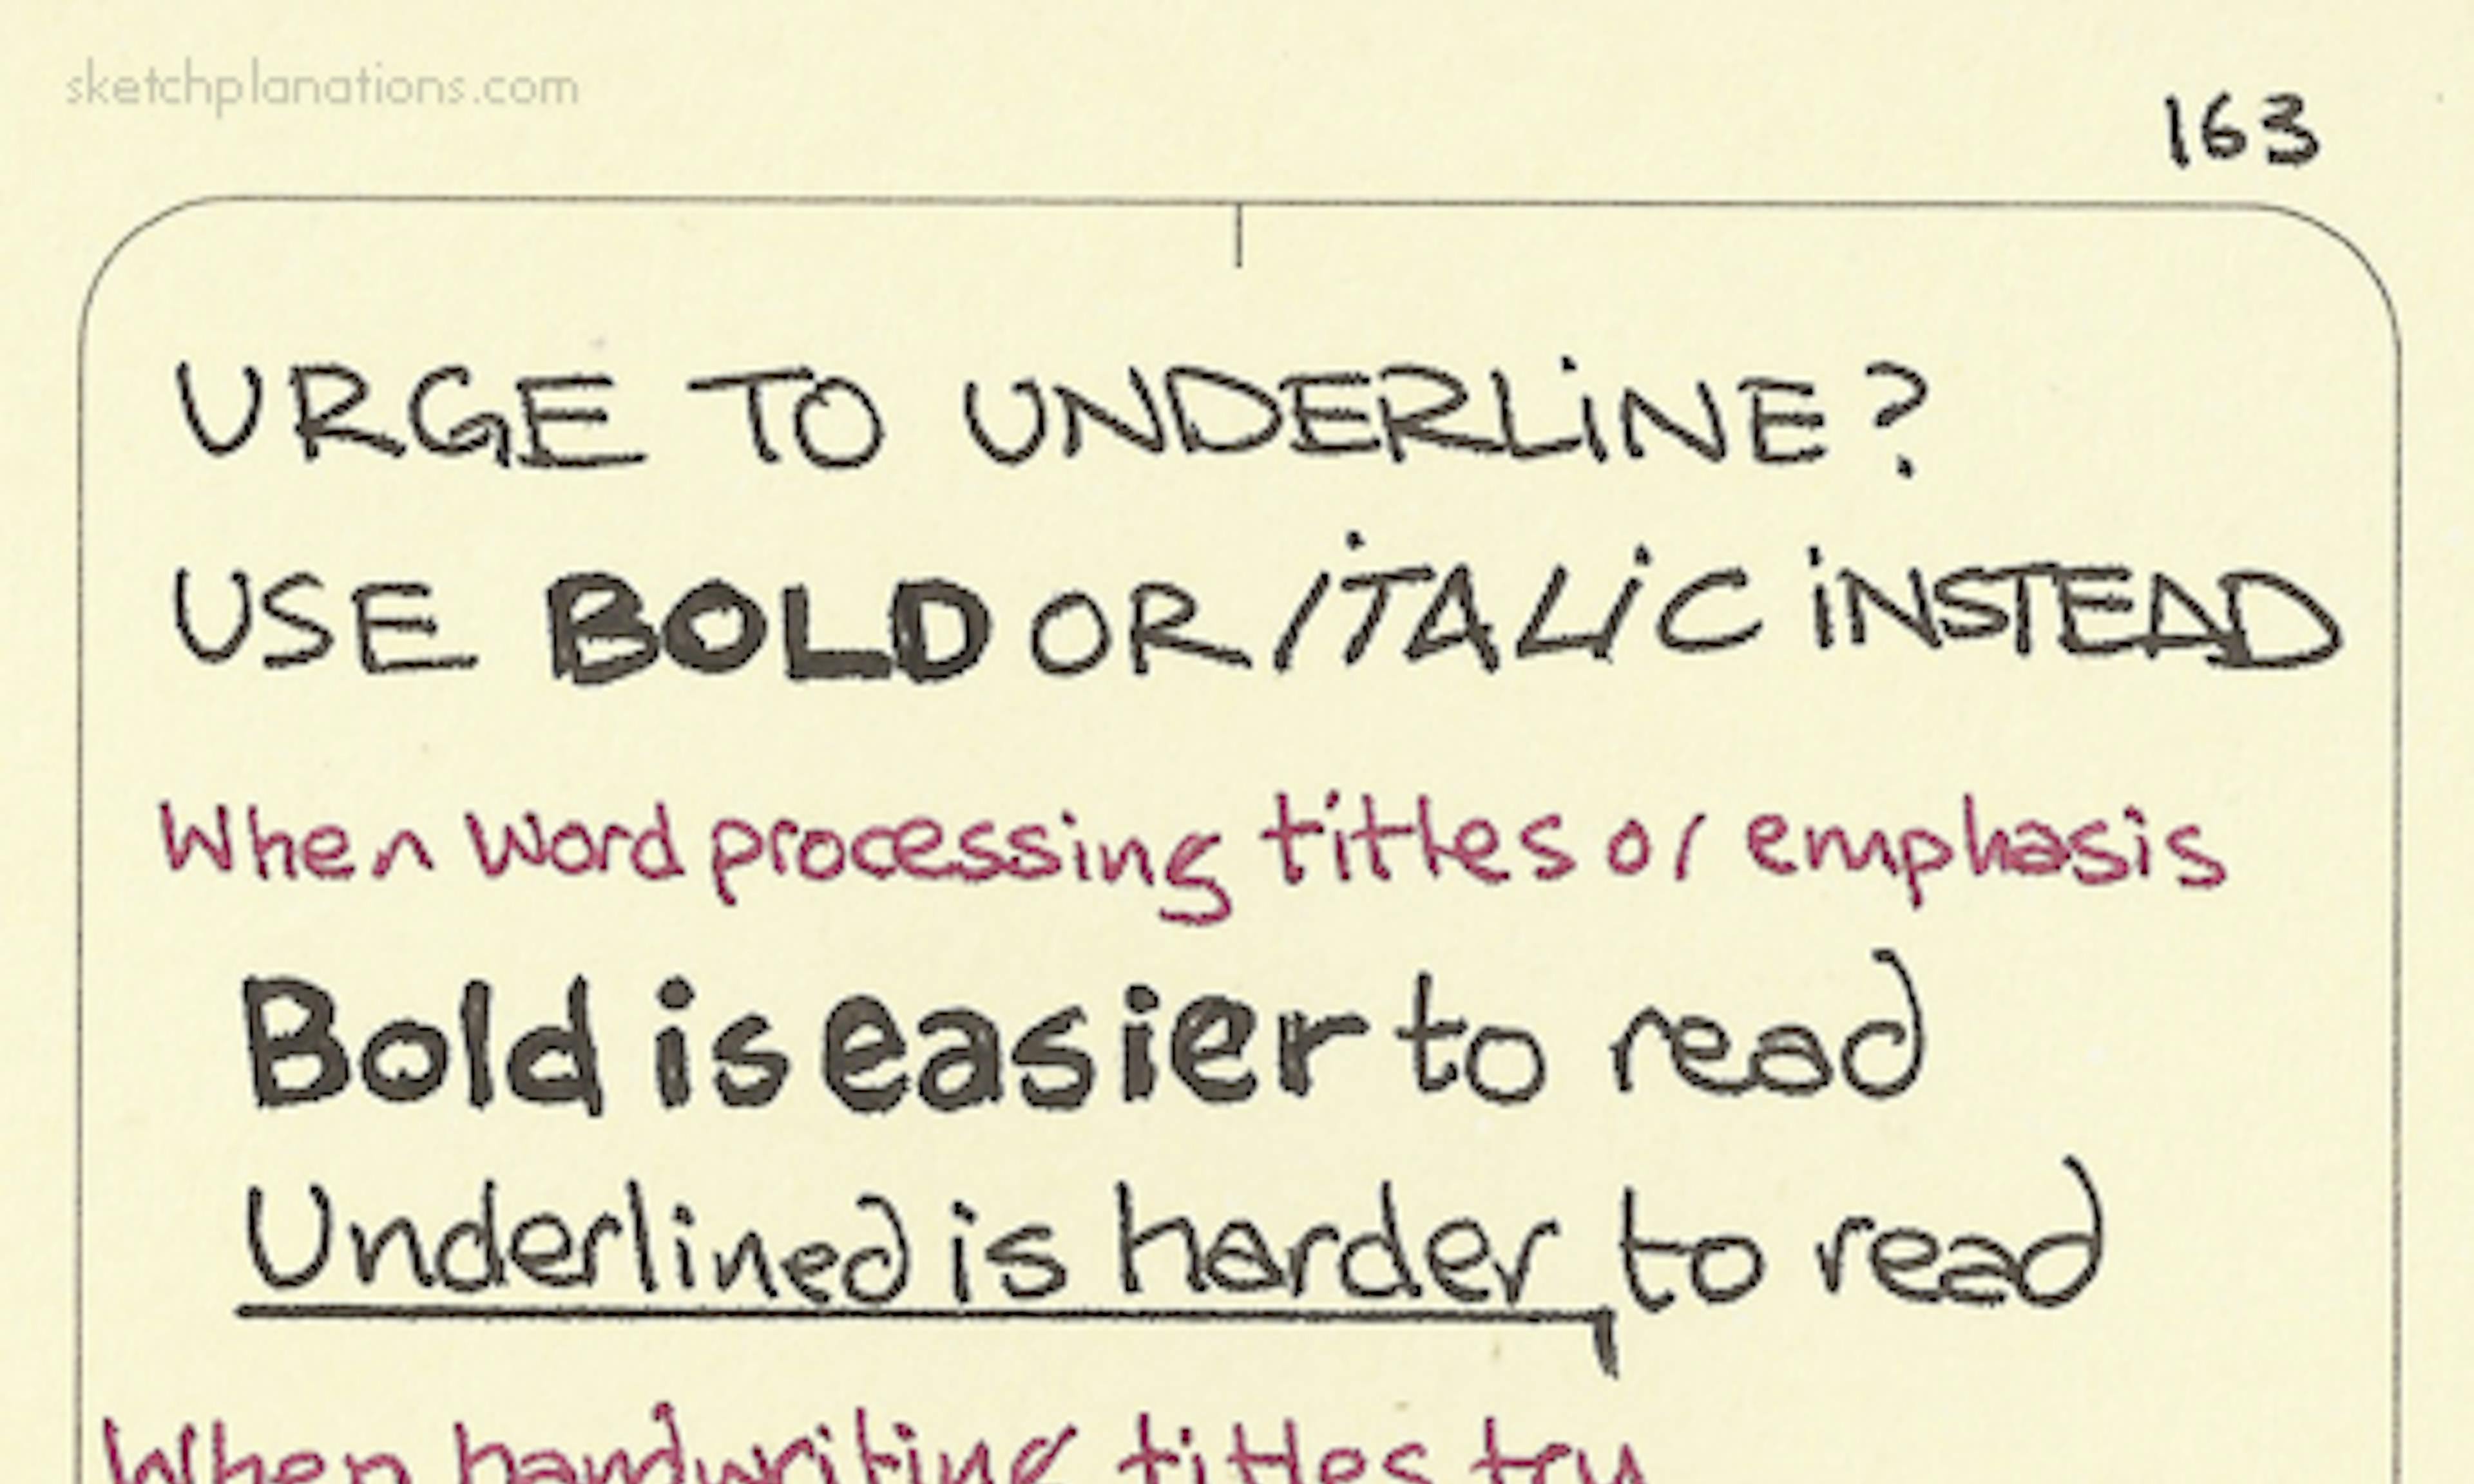 sketchplanations.com
163
URGE TO UNDERLINE?
USE BOLD OR ITALIC INSTEAD
When word processing titles or emphasis
Bold is easier to read
Underlined is harder to read
When handwriting titles try